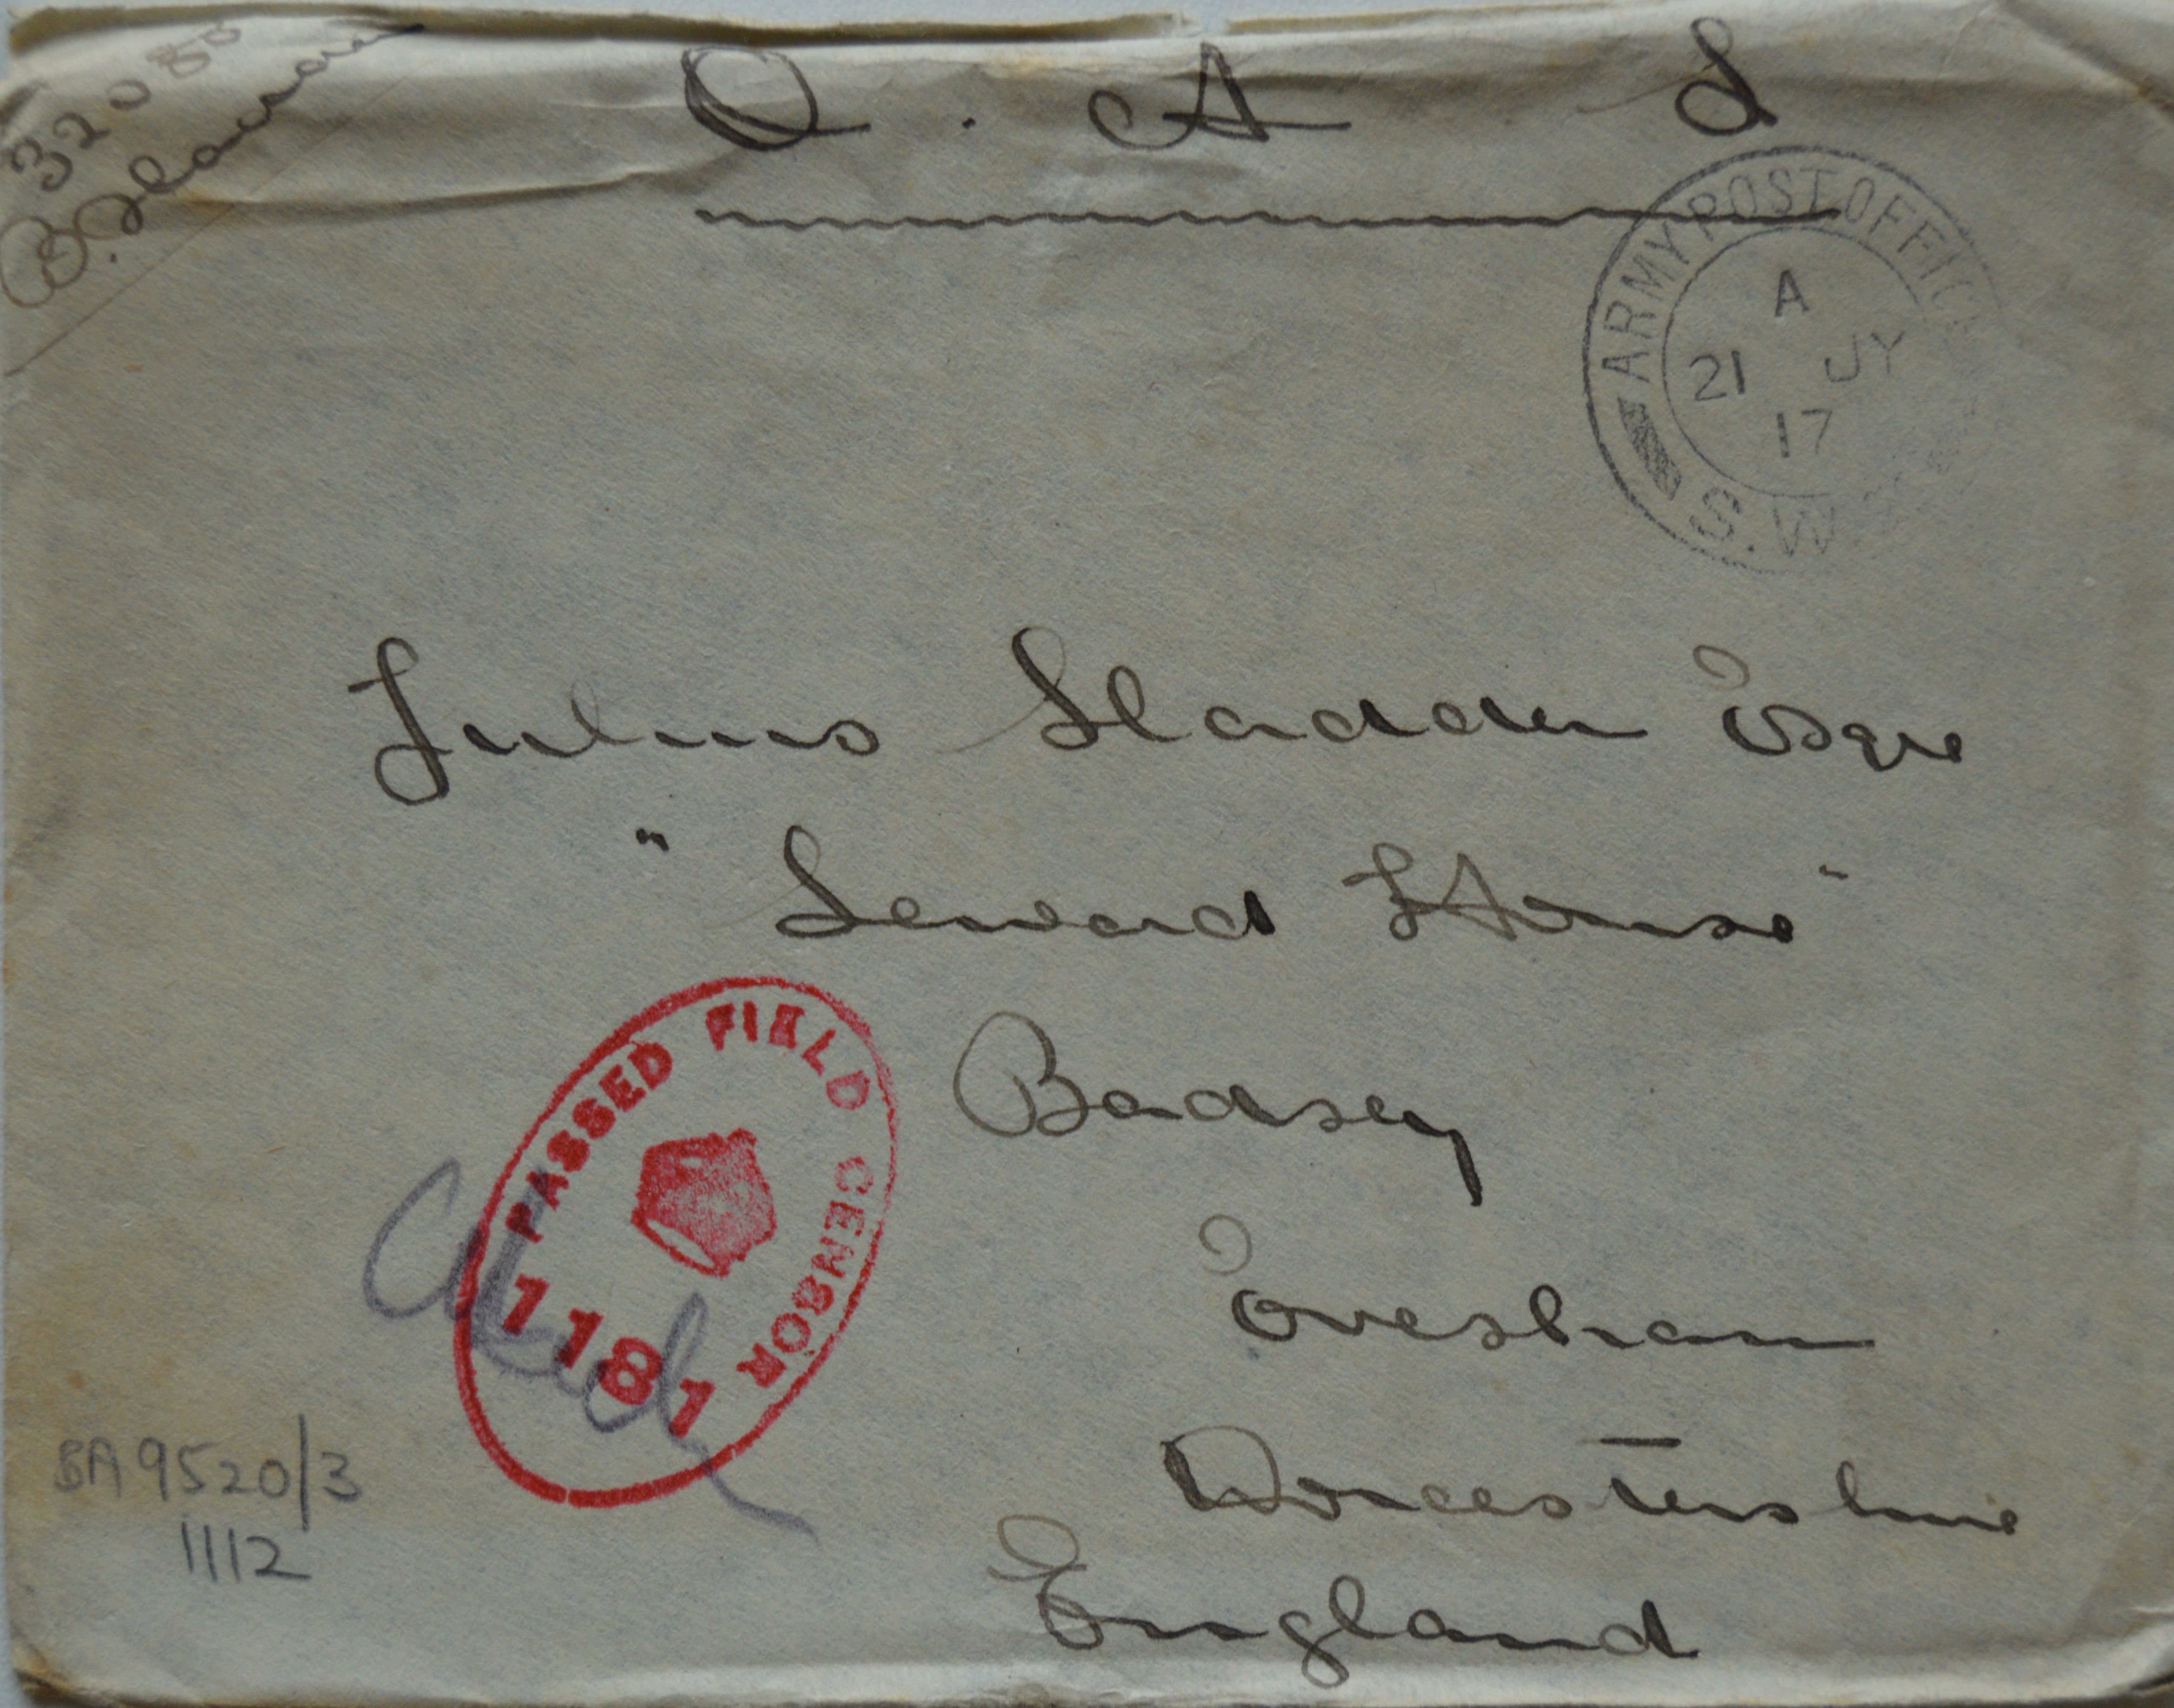 O. A S
ARMY POST OFFICE
A
21 JY
17
S.W
Julius Sladden Esqre
"Seward House"
Badsey
Evesham
Worcestershire
England
PASSED FIELD CENSOR
1181
BA 9520/3
1112